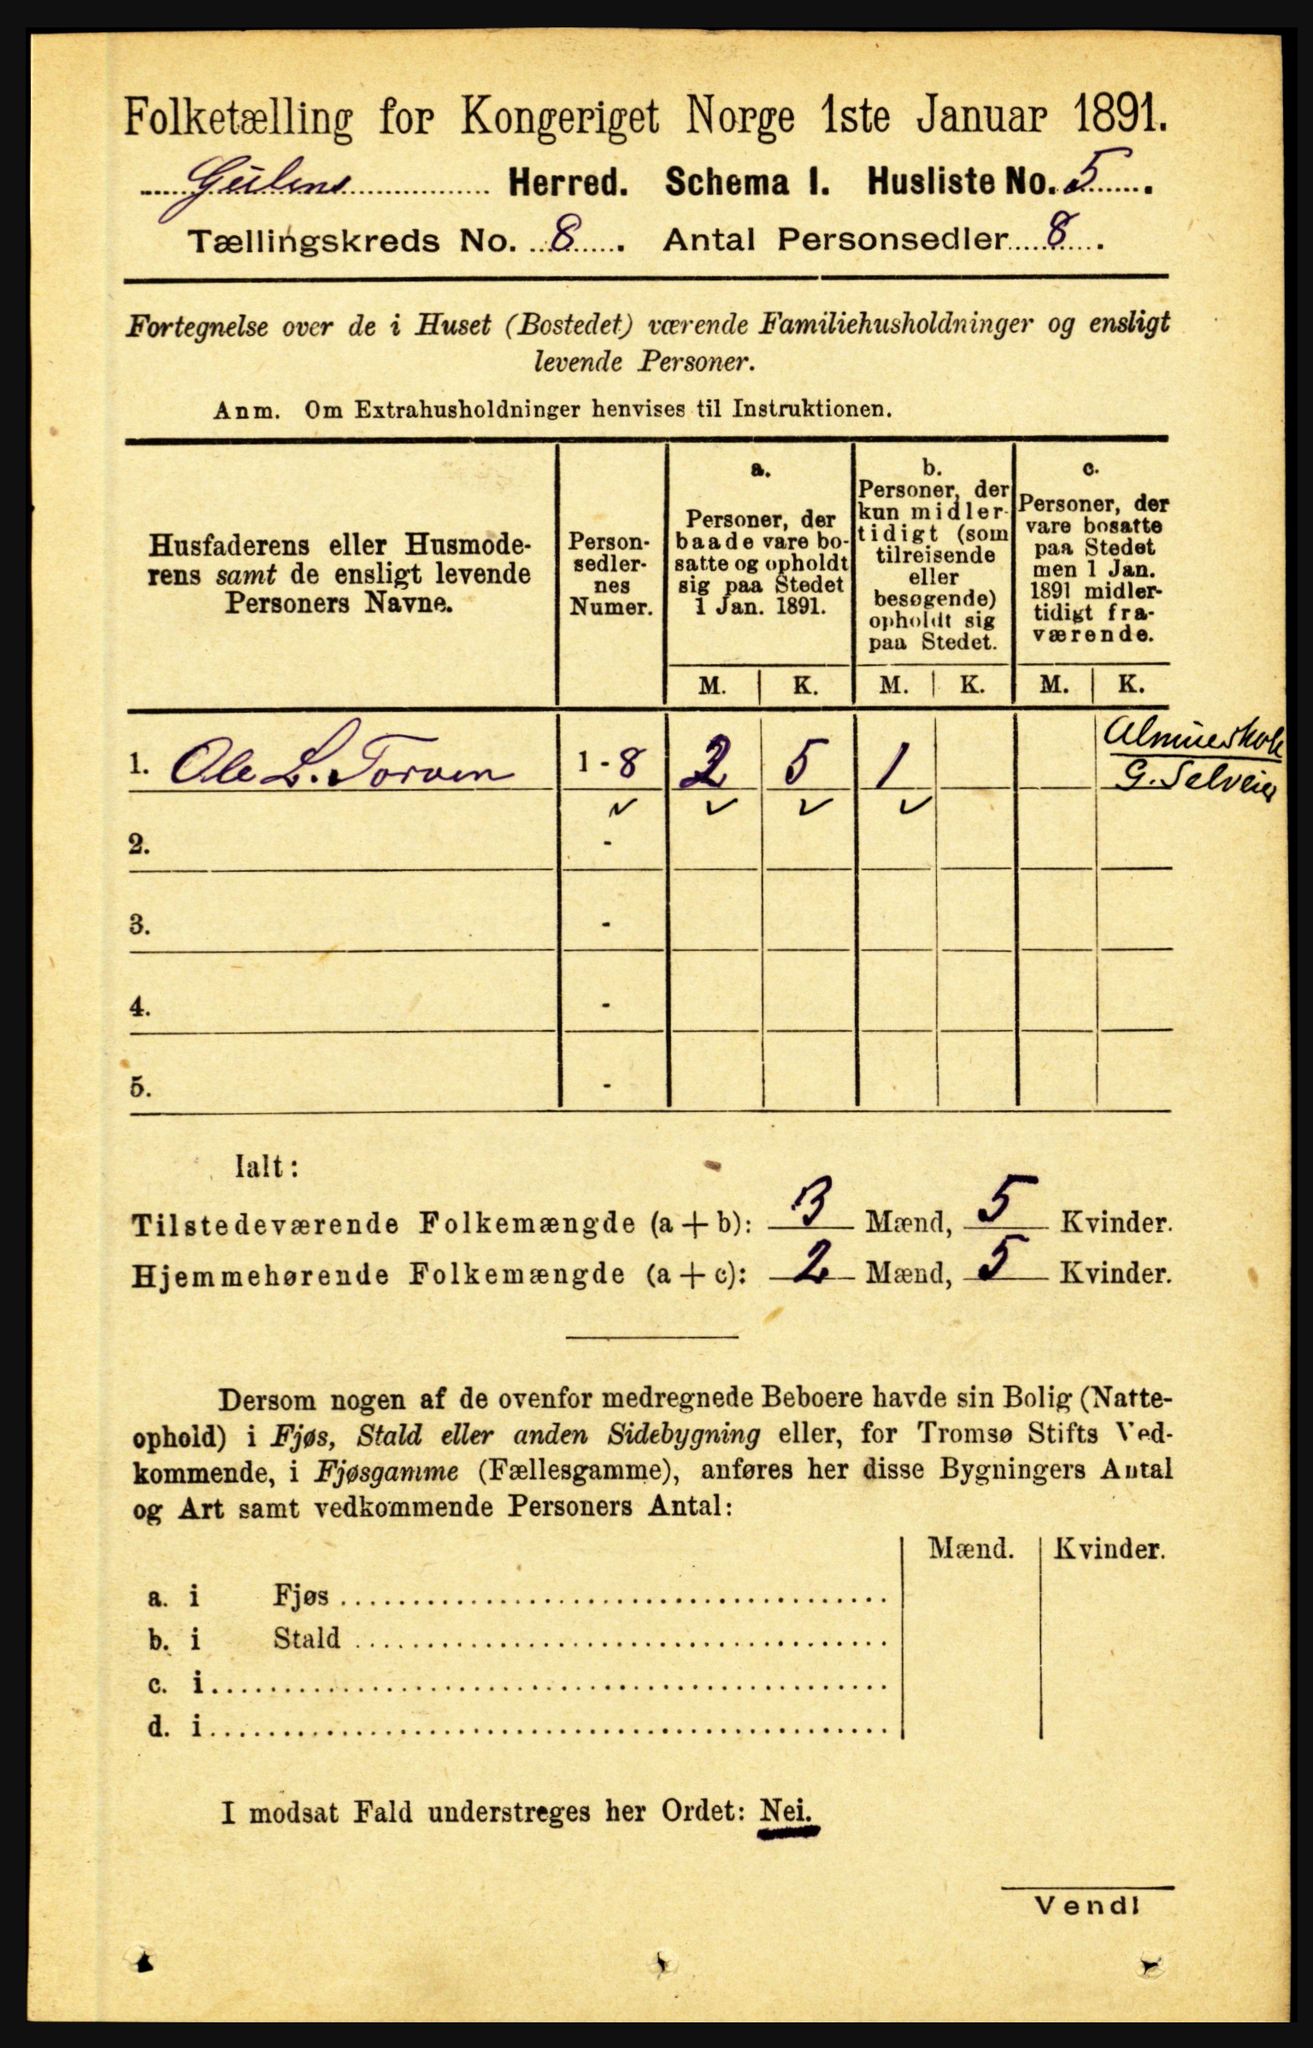 Folketælling for Kongeriget Norge 1ste Januar 1891.
Gulens Herred. Schema I. Husliste No. 5.
Tællingskreds No. 8. Antal Personsedler 8.
Fortegnelse over de i Huset (Bostedet) værende Familiehusholdninger og ensligt
levende Personer.
Anm. Om Extrahusholdninger henvises til Instruktionen.
Husfaderens eller Husmode-
rens samt de ensligt levende
Personers Navne.
Person-
sedler-
nes
Numer.
a.
Personer, der
baade vare bo-
satte og opholdt
sig paa Stedet
1 Jan. 1891.
b.
Personer, der
kun midler-
tidigt (som
tilreisende
eller
besøgende)
opholdt sig
paa Stedet.
c.
Personer, der
vare bosatte
paa Stedet
men 1 Jan.
1891 midler-
tidigt fra-
værende.
M. K. M. K. M. K.
1. Ole L. Torven 1 - 8 2 5 1
G. Selveier
2. -
3. -
4. -
5. -
Ialt:
Tilstedeværende Folkemængde (a + b): 3 Mænd, 5 Kvinder.
Hjemmehørende Folkemængde (a + c): 2 Mænd, 5 Kvinder.
Dersom nogen af de ovenfor medregnede Beboere havde sin Bolig (Natte-
ophold) i Fjøs, Stald eller anden Sidebygning eller, for Tromsø Stifts Ved-
kommende, i Fjøsgamme (Fællesgamme), anføres her disse Bygningers Antal
og Art samt vedkommende Personers Antal:
Mænd. Kvinder.
a. i Fjøs
b. i Stald
c. i
d. i
I modsat Fald understreges her Ordet: Nei.
Vend!